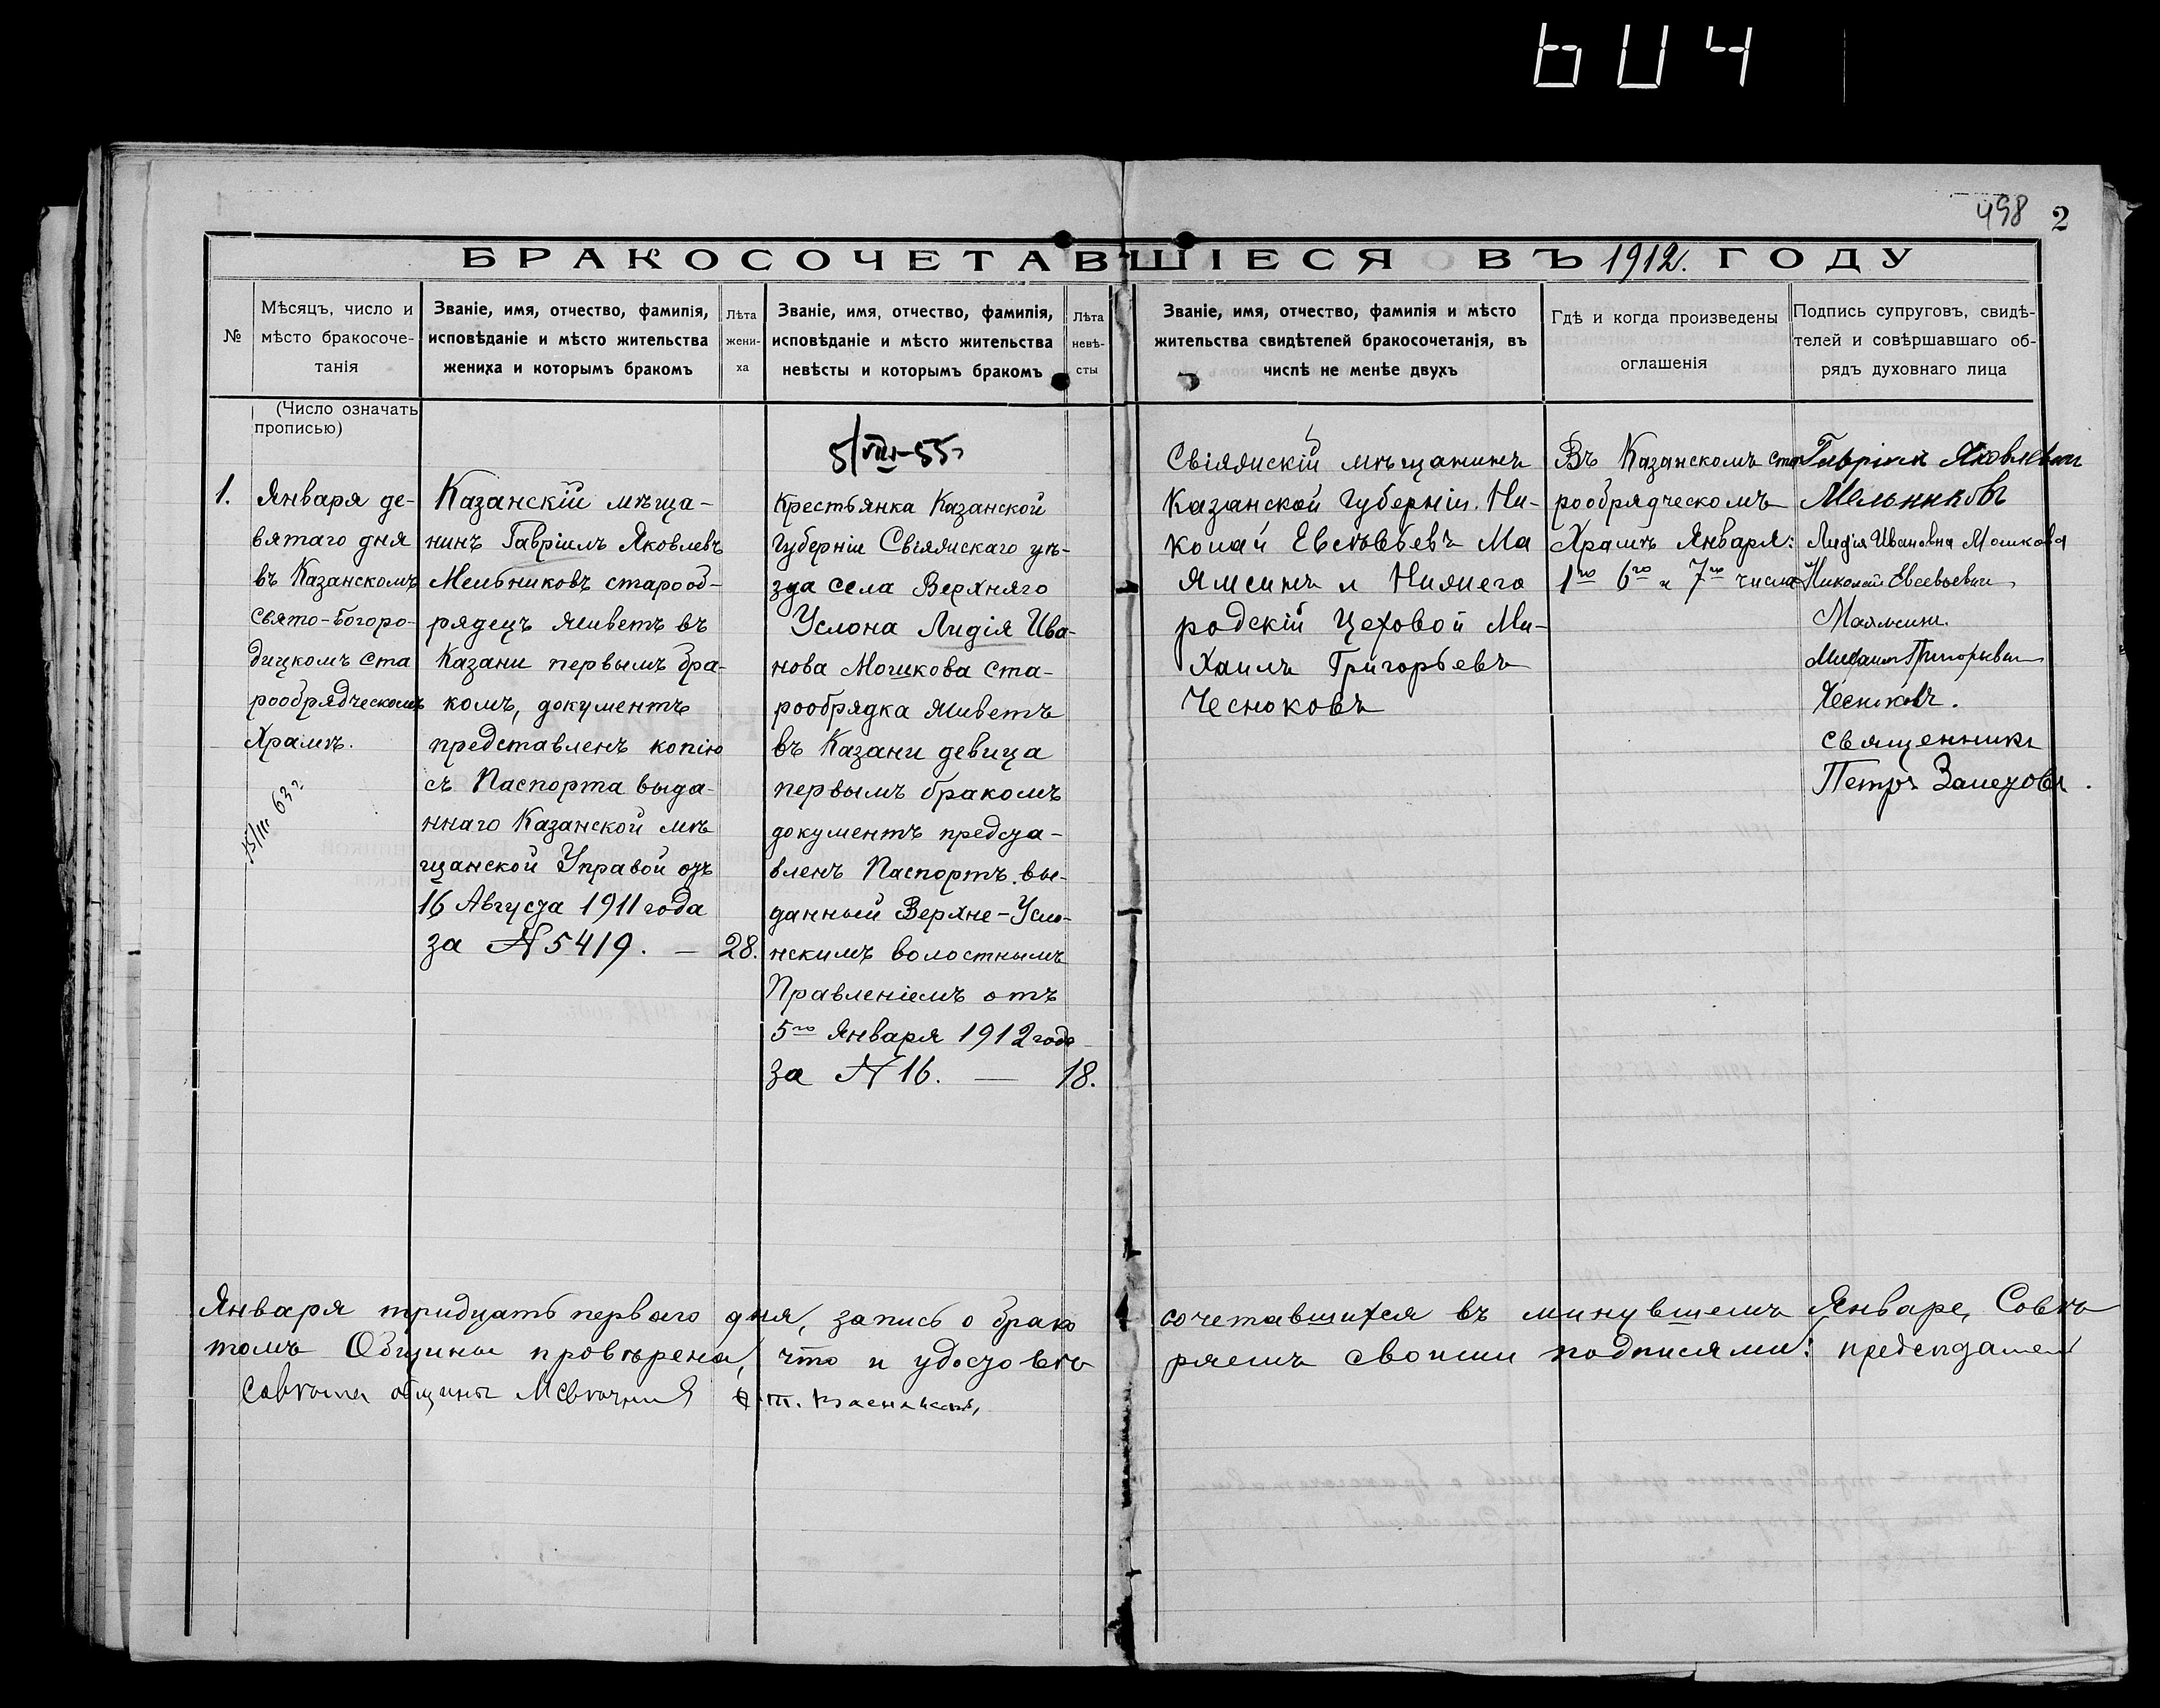 604
498 2
БРАКОСОЧЕТАВШІЕСЯ ВЪ 1912. ГОДУ
№
Мѣсяцъ, число и
мѣсто бракосоче-
танія
Званіе, имя, отчество, фамилія,
исповѣданіе и мѣсто жительства
жениха и которымъ бракомъ
Лѣта
жени-
ха
Званіе, имя, отчество, фамилія,
исповѣданіе и мѣсто жительства
невѣсты и которымъ бракомъ
Лѣта
невѣ-
сты
Званіе, имя, отчество, фамилія и мѣсто
жительства свидѣтелей бракосочетанія, въ
числѣ не менѣе двухъ
Гдѣ и когда произведены
оглашенія
Подпись супруговъ, свидѣ-
телей и совѣршавшаго об-
рядъ духовнаго лица
(Число означать
прописью)
1.
Января де-
вятаго дня
въ Казанскомъ
Свято-Богоро-
дицкомъ Ста
рообрядческомъ
Храмѣ.
15/III 63г
Казанскій мѣща-
нинъ Гавріилъ Яковлевъ
Мельниковъ старооб-
рядецъ живетъ въ
Казани первымъ бра-
комъ, документъ
представленъ копію
съ Паспорта выда-
ннаго Казанской мѣ
щанской Управой отъ
16 Августа 1911 года
за № 5419. — 28.
5/VIII-55г
Крестьянка Казанской
Губерніи Свіяжскаго уѣ-
зда села Верхняго
Услона Лидія Ива-
нова Мошкова ста-
рообрядка живетъ
въ Казани девица
первымъ бракомъ
документъ предста-
вленъ Паспортъ вы-
данный Верхне-Усло-
нскимъ волостнымъ
Правленіемъ отъ
5го Января 1912 года
за № 16. — 18.
Свіяжскій мѣщанинъ
Казанской Губерніи. Ни-
колай Евсѣвьевъ Ма
яжсинъ и Нижего
родскій Цеховой Ми-
хаилъ Григорьевъ
Чесноковъ
Въ Казанскомъ Ста
рообрядческомъ
Храмѣ Января:
1го 6го и 7го числа
Гавріилъ Яковлевич
Мельниковъ
Лидія Ивановна Мошкова
Николай Евсевьевич
Михаилъ Григорьевич
Чесноковъ.
Священникъ
Петръ Залетовъ.
Января тридцать перваго дня, запись о брако сочетавшихся въ минувшемъ Январе, Совѣ
томъ Общины провѣрена, что и удостовѣ ряемъ своими подписями: председатель
Совѣта общины